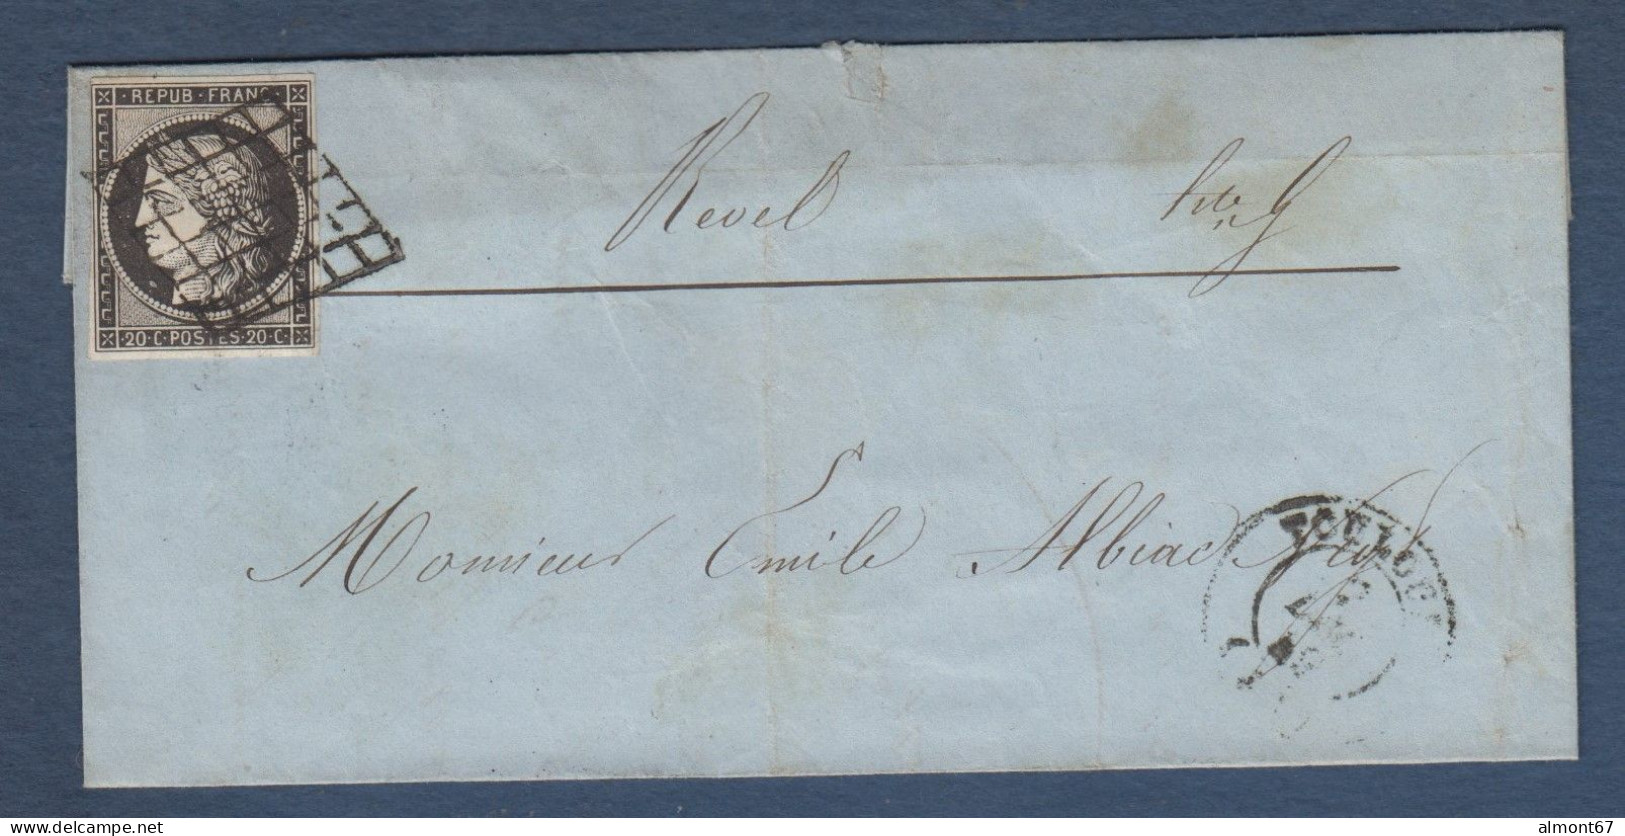 REPUB · FRANC
20·C·POSTES·20·C·
Revel hte G
Monsieur Emile Albiac
TOULOUSE
delcampe.net
almont67